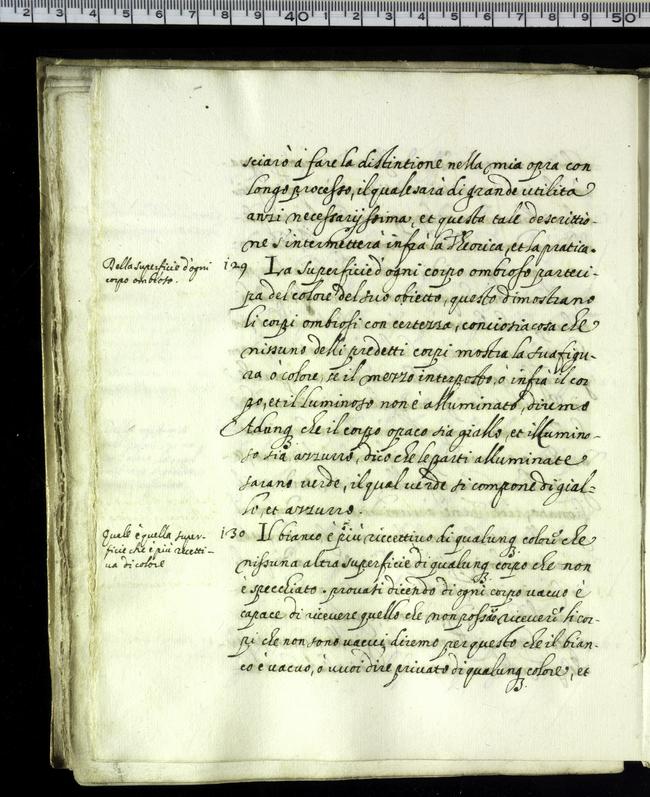 2 3 4 5 6 7 8 9 40 1 2 3 4 5 6 7 8 9 50
sciarò à fare la distintione nella mia opra con
longo processo, il quale sarà di grande utilità
anzi necessarijssima, et questa tale descrittio-
ne s'intermetterà infrà la Theorica, et la pratica.
Della superficie d'ogni
corpo ombroso.
129 La superficie d'ogni corpo ombroso parteci-
pa del colore del suo obietto, questo dimostrano
li corpi ombrosi con certezza, conciosiacosa che
nissuno delli predetti corpi mostra la sua figu-
ra ò colore, se il mezzo interposto, ò infrà il cor
po, et il luminoso non è alluminato, diremo
Adunq che il corpo opaco sia giallo, et il lumino-
so sia azzurro, dico che le parti alluminate
sarano verde, il qual verde si compone di gial-
lo, et azzurro.
Quale è quella super-
ficie che è più ricetti-
va di colore
130 Il bianco è più riccettivo di qualunq colore che
nissuna altra superficie di qualunq corpo che non
è specchiato. provasi dicendo di ogni corpo vacuo è
capace di ricevere quello che non possão ricevere li cor-
pi che non sono vacui, diremo per questo che il bian-
co è vacuo, ò vuoi dire privato di qualunq colore, et